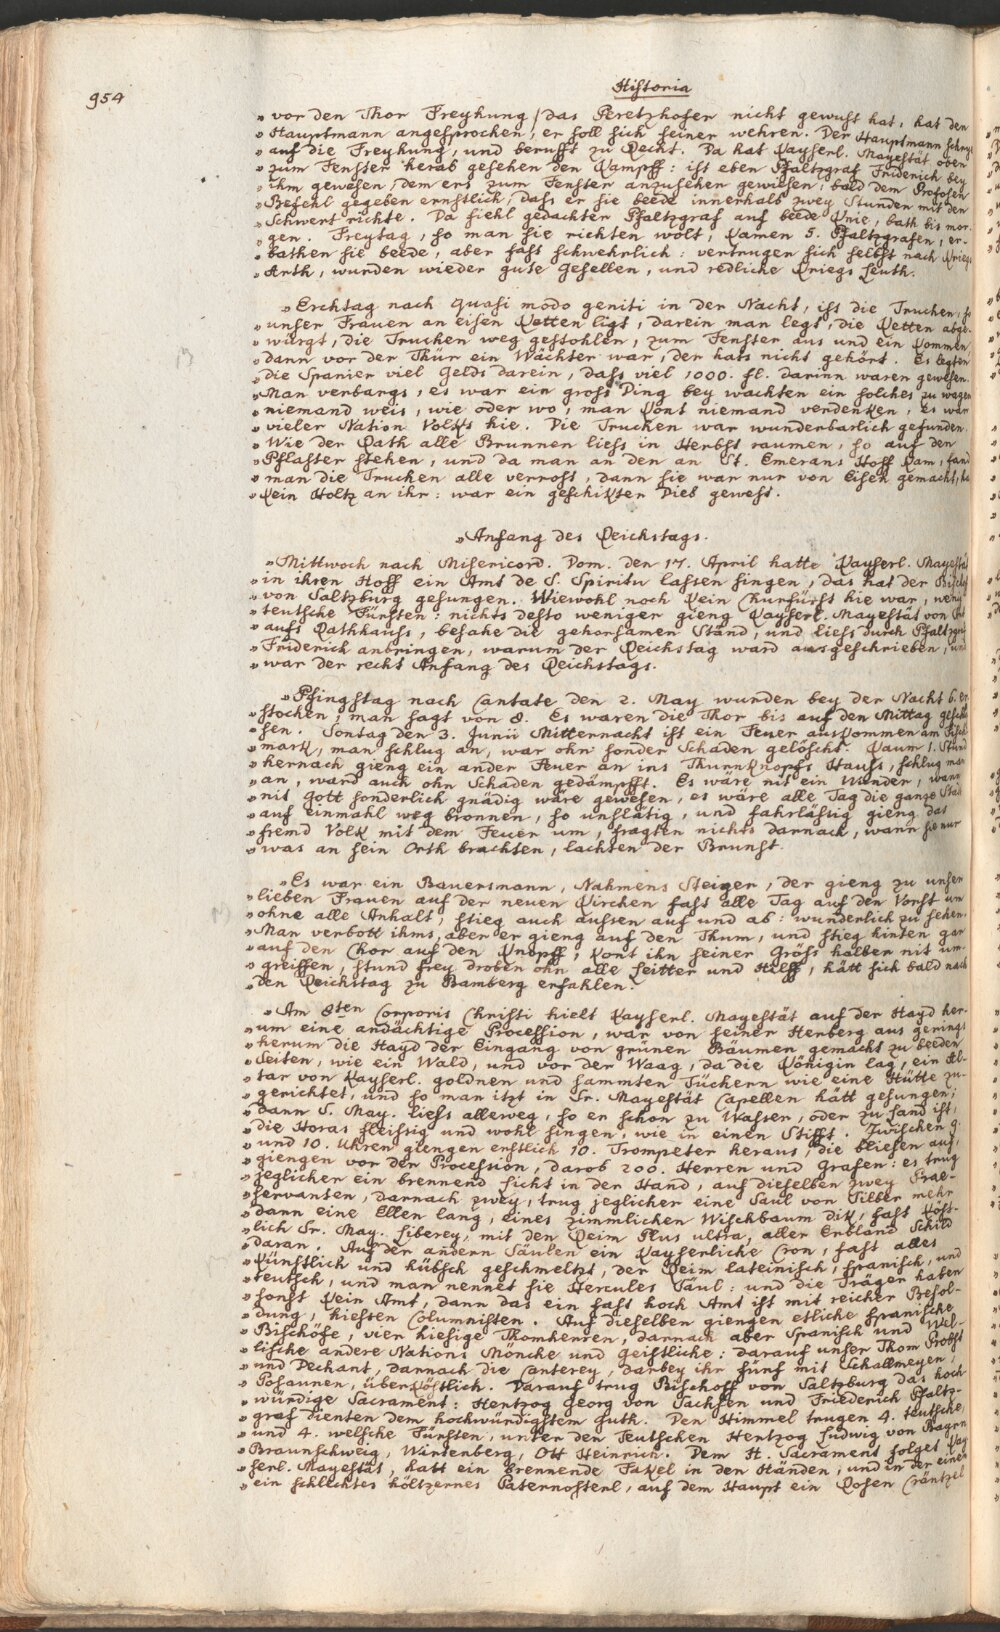 954
Historia
" vor den Thor Freyhung / das Peretzhofer nicht gewust hat, hat den
" Hauptmann angesprochen, er soll sich seiner wehren. Der Hauptmann schrye
" auf die Freyhung, und berufft zu Recht. Da hat Kayserl. Mayestät oben
" zum Fenster herab gesehen den Kampff: ist eben Pfaltzgraf Friderich bey
" ihm gewesen, dem ers zum Fenster anzusehen gewiesen: bald dem Profosen
" Befehl gegeben ernstlich, dass er sie beede innerhalb zwey Stunden mit den
" Schwert richte. Da fiehl gedachter Pfaltzgraf auf beede Knie, bath bis mor-
" gen. Freytag, so man sie richten wolt, kamen 5. Pfaltzgrafen, er-
" bathen sie beede, aber fast schwehrlich: vertrugen sich selbst nach Kriegs
" Arth, wurden wieder gute Gesellen, und redliche Kriegs Leuth.
" Erchtag nach Quasi modo geniti in der Nacht, ist die Truchen, so
" unser Frauen an eisen Ketten ligt, darein man legt, die Ketten abge-
" würgt, die Truchen weg gestohlen, zum Fenster aus und ein kommen,
" dann vor der Thür ein Wächter war, der hats nicht gehört. Es legten
" die Spanier viel Gelds darein, dass viel 1000. fl. darinn waren gewesen.
" Man verbargs, es war ein gross Ding bey wachten ein solches zu wagen
" niemand weis, wie oder wo, man kont niemand verdenken, es war
" vieler Nation Volks hie. Die Trucken war wunderbarlich gefunden.
" Wie der Rath alle Brunnen liess in Herbst raumen, so auf den
" Pflaster stehen, und da man an den an St. Emerans Hoff kam, fand
" man die Trucken alle verrost, dann sie war nur von Eisen gemacht,
" kein Holtz an ihr: war ein geschikter Dieb gewest.
" Anfang des Reichstags.
" Mittwoch nach Misericord. Dom. den 17. April hatte Kayserl. Mayestät
" in ihren Hoff ein Amt de S. Spiritu lassen singen, das hat der Bischof
" von Saltzburg gesungen. Wiewohl noch kein Churfürst hie war, wenig
" teutsche Fürsten: nichts desto weniger gieng Kayserl. Mayestät von
" aufs Rathhauss, besahe die gehorsamen Ständ, und liess durch Pfaltzgraf
" Friderich anbringen, warum der Reichstag ward ausgeschrieben, und
" war der recht Anfang des Reichstags.
" Pfingstag nach Cantate den 2. May wurden bey der Nacht 6. er-
" stochen, man sagt von 8. Es waren die Thor bis auf den Mittag geschlos-
" sen. Sontag den 3. Junii Mitternacht ist ein Feuer auskommen am Fisch-
" mark, man schlug an, war ohn sonder Schaden gelöscht. Kaum 1. Stund
" hernach gieng ein ander Feuer an ins Thurnknopfs Hauss, schlug man
" an, ward auch ohn Schaden gedämpfft. Es wäre nit ein Wunder, wann
" nit Gott sonderlich gnädig wäre gewesen, es wäre alle Tag die gantze Stadt
" auf einmahl weg bronnen, so unflätig, und fahrlässig gieng das
" fremd Volk mit dem Feuer um, fragten nichts darnach, wann sie nur
" was an sein Orth brachten, lachten der Brunst.
" Es war ein Bauersmann, Nahmens Steiger, der gieng zu unser
" lieben Frauen auf der neuen Kirchen fast alle Tag auf den Forst um
" ohne alle Anhalt, stieg auch aussen auf und ab: wunderlich zu sehen.
" Man verbott ihms, aber er gieng auf den Thum, und stieg hinten gar
" auf den Chor auf den Knopff, kont ihn seiner Gröss halber nit um-
" greiffen, stund frey droben ohn alle Leitter und Hilff, hätt sich bald nach
" den Reichstag zu Bamberg erfahlen.
" Am 8ten Corporis Christi hielt Kayserl. Mayestät auf der Hayd her-
" um eine andächtige Procession, war von seiner Herberg aus gerings
" herum die Hayd der Eingang von grünen Bäumen gemacht zu beeden
" Seiten, wie ein Wald, und vor der Waag, da die Königin lag, ein Al-
" tar von Kayserl. goldnen und sammten Tüchern wie eine Hütte zu-
" gerichtet, und so man itzt in Sr. Mayestät Capellen hätt gesungen,
" dann S. May. liess alleweg, so er schon zu Wasser, oder zu Land ist,
" die Horas fleissig und wohl singen, wie in einen Stifft. Zwischen 9.
" und 10. Uhren giengen erstlich 10. Trompeter heraus, die bliesen auf,
" giengen vor der Procession, darob 200. Herren und Grafen: es trug
" jeglicher ein brennend Licht in der Hand, auf dieselben zwey Trae-
" servanten, darnach zwey, trug jeglicher eine Saul von Silber mehr
" dann eine Ellen lang, eines zimmlichen Wischbaum dik, fast köst-
" lich Sr. May. Liberey, mit den Reim Plus ultra, aller Erbland Schild
" daran. Auf der andern Säulen ein Kayserliche Cron, fast alles
" künstlich und hübsch geschmeltzt, der Reim lateinisch, spanisch, und
" teutsch, und man nennet sie Hercules Säul: und die Träger haben
" sonst kein Amt, dann das ein fast hoch Amt ist mit reicher Besol-
" dung, hiessen Columnisten. Auf dieselben giengen etliche spanische
" Bischöfe, vier hiesige Thomherren, darnach aber Spanisch und Wel-
" lische andere Nations Mönche und Geistliche: darauf unser Thom Probst
" und Dechant, darnach die Canterey, darbey ihr fünf mit Schallmeyen,
" Posaunen, überköstlich. Darauf trug Bischoff von Saltzburg das hoch-
" würdige Sacrament: Hertzog Georg von Sachsen und Friederich Pfaltz-
" graf dienten dem hochwürdigstem Guth. Den Himmel trugen 4. teutsche
" und 4. welsche Fürsten, unter den Teutschen Hertzog Ludwig von Bayrn
" Braunschweig, Wirtenberg, Ott Heinrich. Dem H. Sacrament folget Kay-
" serl. Mayestät, hatt ein brennende Fakel in den Händen, und in der einen
" ein schlechtes höltzernes Paternosterl, auf dem Haupt ein Rosen Cräntzel